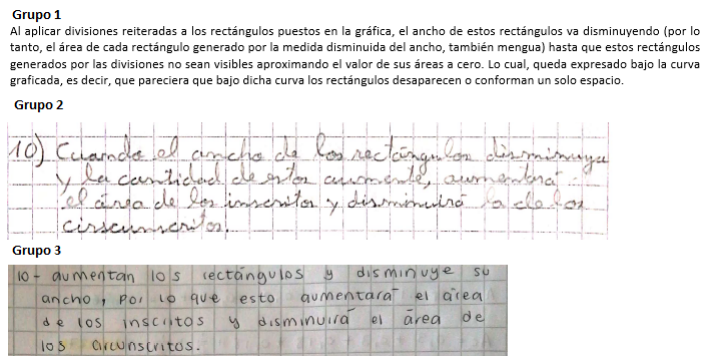 Grupo 1
Al aplicar divisiones reiteradas a los rectángulos puestos en la gráfica, el ancho de estos rectángulos va disminuyendo (por lo
tanto, el área de cada rectángulo generado por la medida disminuida del ancho, también mengua) hasta que estos rectángulos
generados por las divisiones no sean visibles aproximando el valor de sus áreas a cero. Lo cual, queda expresado bajo la curva
graficada, es decir, que pareciera que bajo dicha curva los rectángulos desaparecen o conforman un solo espacio.
Grupo 2
10) Cuando el ancho de los rectángulos disminuya
y la cantidad de estos aumente, aumentará
el área de los inscritos y disminuirá la de los
circunscritos.
Grupo 3
10- aumentan los rectángulos y disminuye su
ancho, por lo que esto aumentará el área
de los inscritos y disminuirá el área de
los circunscritos.